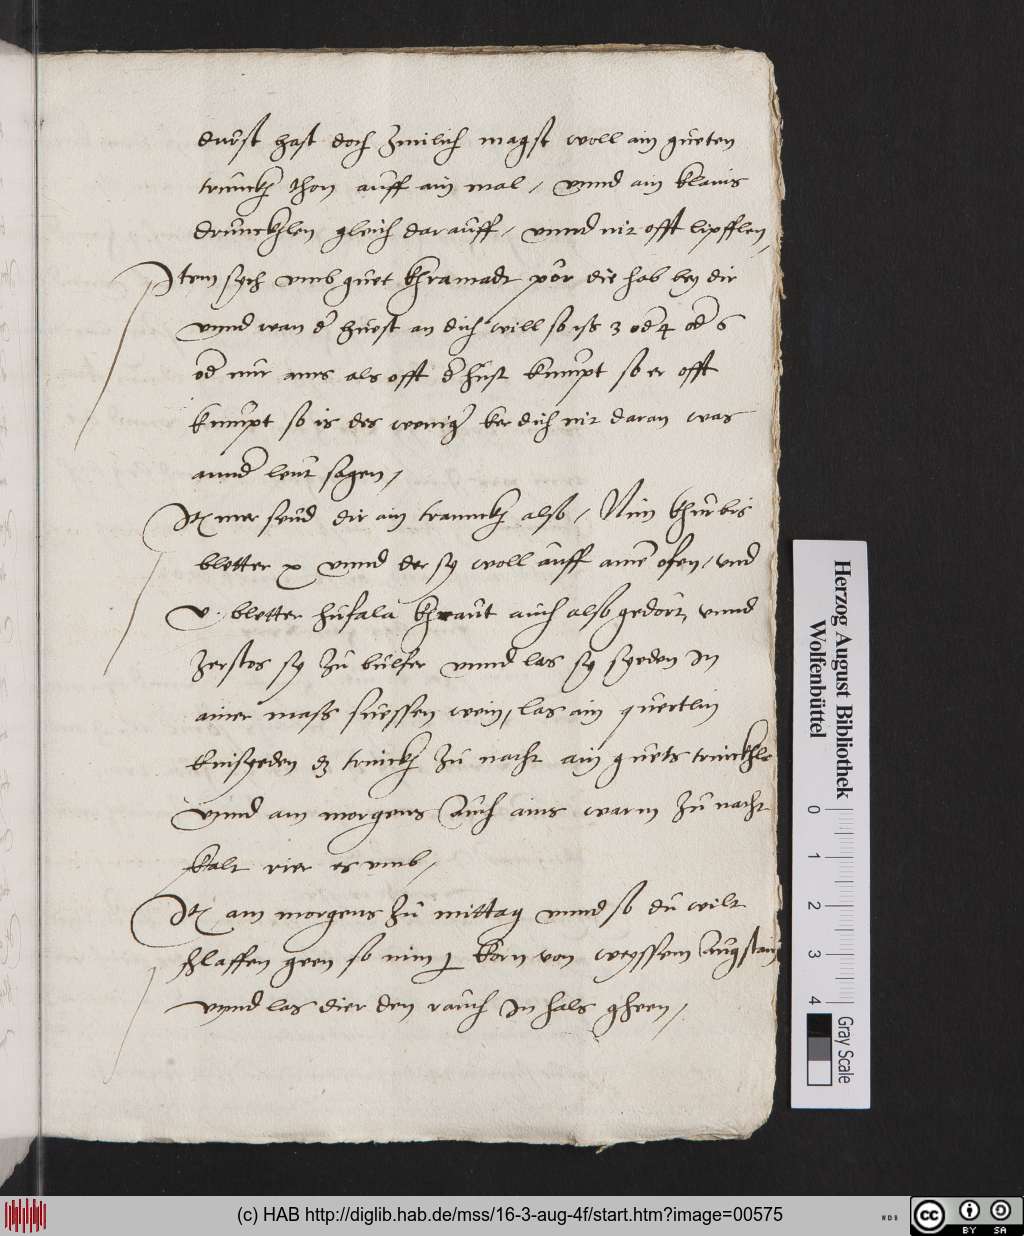 durst hast doch zimlich magst woll ain gueten
trunckh thon auff ain mal, vnnd ain klains
drunckhlen gleich darauff, vnnd nit offt lipfflen,
Item sych vmb guet khramadt pör die hab bey dir
vnnd wan der huest an dich will so iss 3 oder 4 oder 6
oder nur ains als offt der hust kumpt so er offt
kumpt so is des weniger ker dich nit daran was
annder leut sagen,
Item mer seud dir ain trannckh also, Nim khürbis
bletter x vnnd der sy woll auff ainem ofen, vnd
v. bletter hufala khraut auch also gedört, vnnd
zerstos sy zu bulfer vnnd las sy syeden in
ainer mass suessen wein, las ain quertlin
einsyeden dz trinckh zu nacht ain guets trinckhle
vnnd am morgens auch ains warm zu nacht
kalt rier es vmb,
Item am morgens zu mittag vnnd so du wilt
schlaffen geen so nim j korn von weyssem augstain
vnnd las dier den rauch in hals gheen,
Herzog August Bibliothek
Wolfenbüttel
0 1 2 3 4
Gray Scale
(c) HAB http://diglib.hab.de/mss/16-3-aug-4f/start.htm?image=00575
WDB
cc BY SA